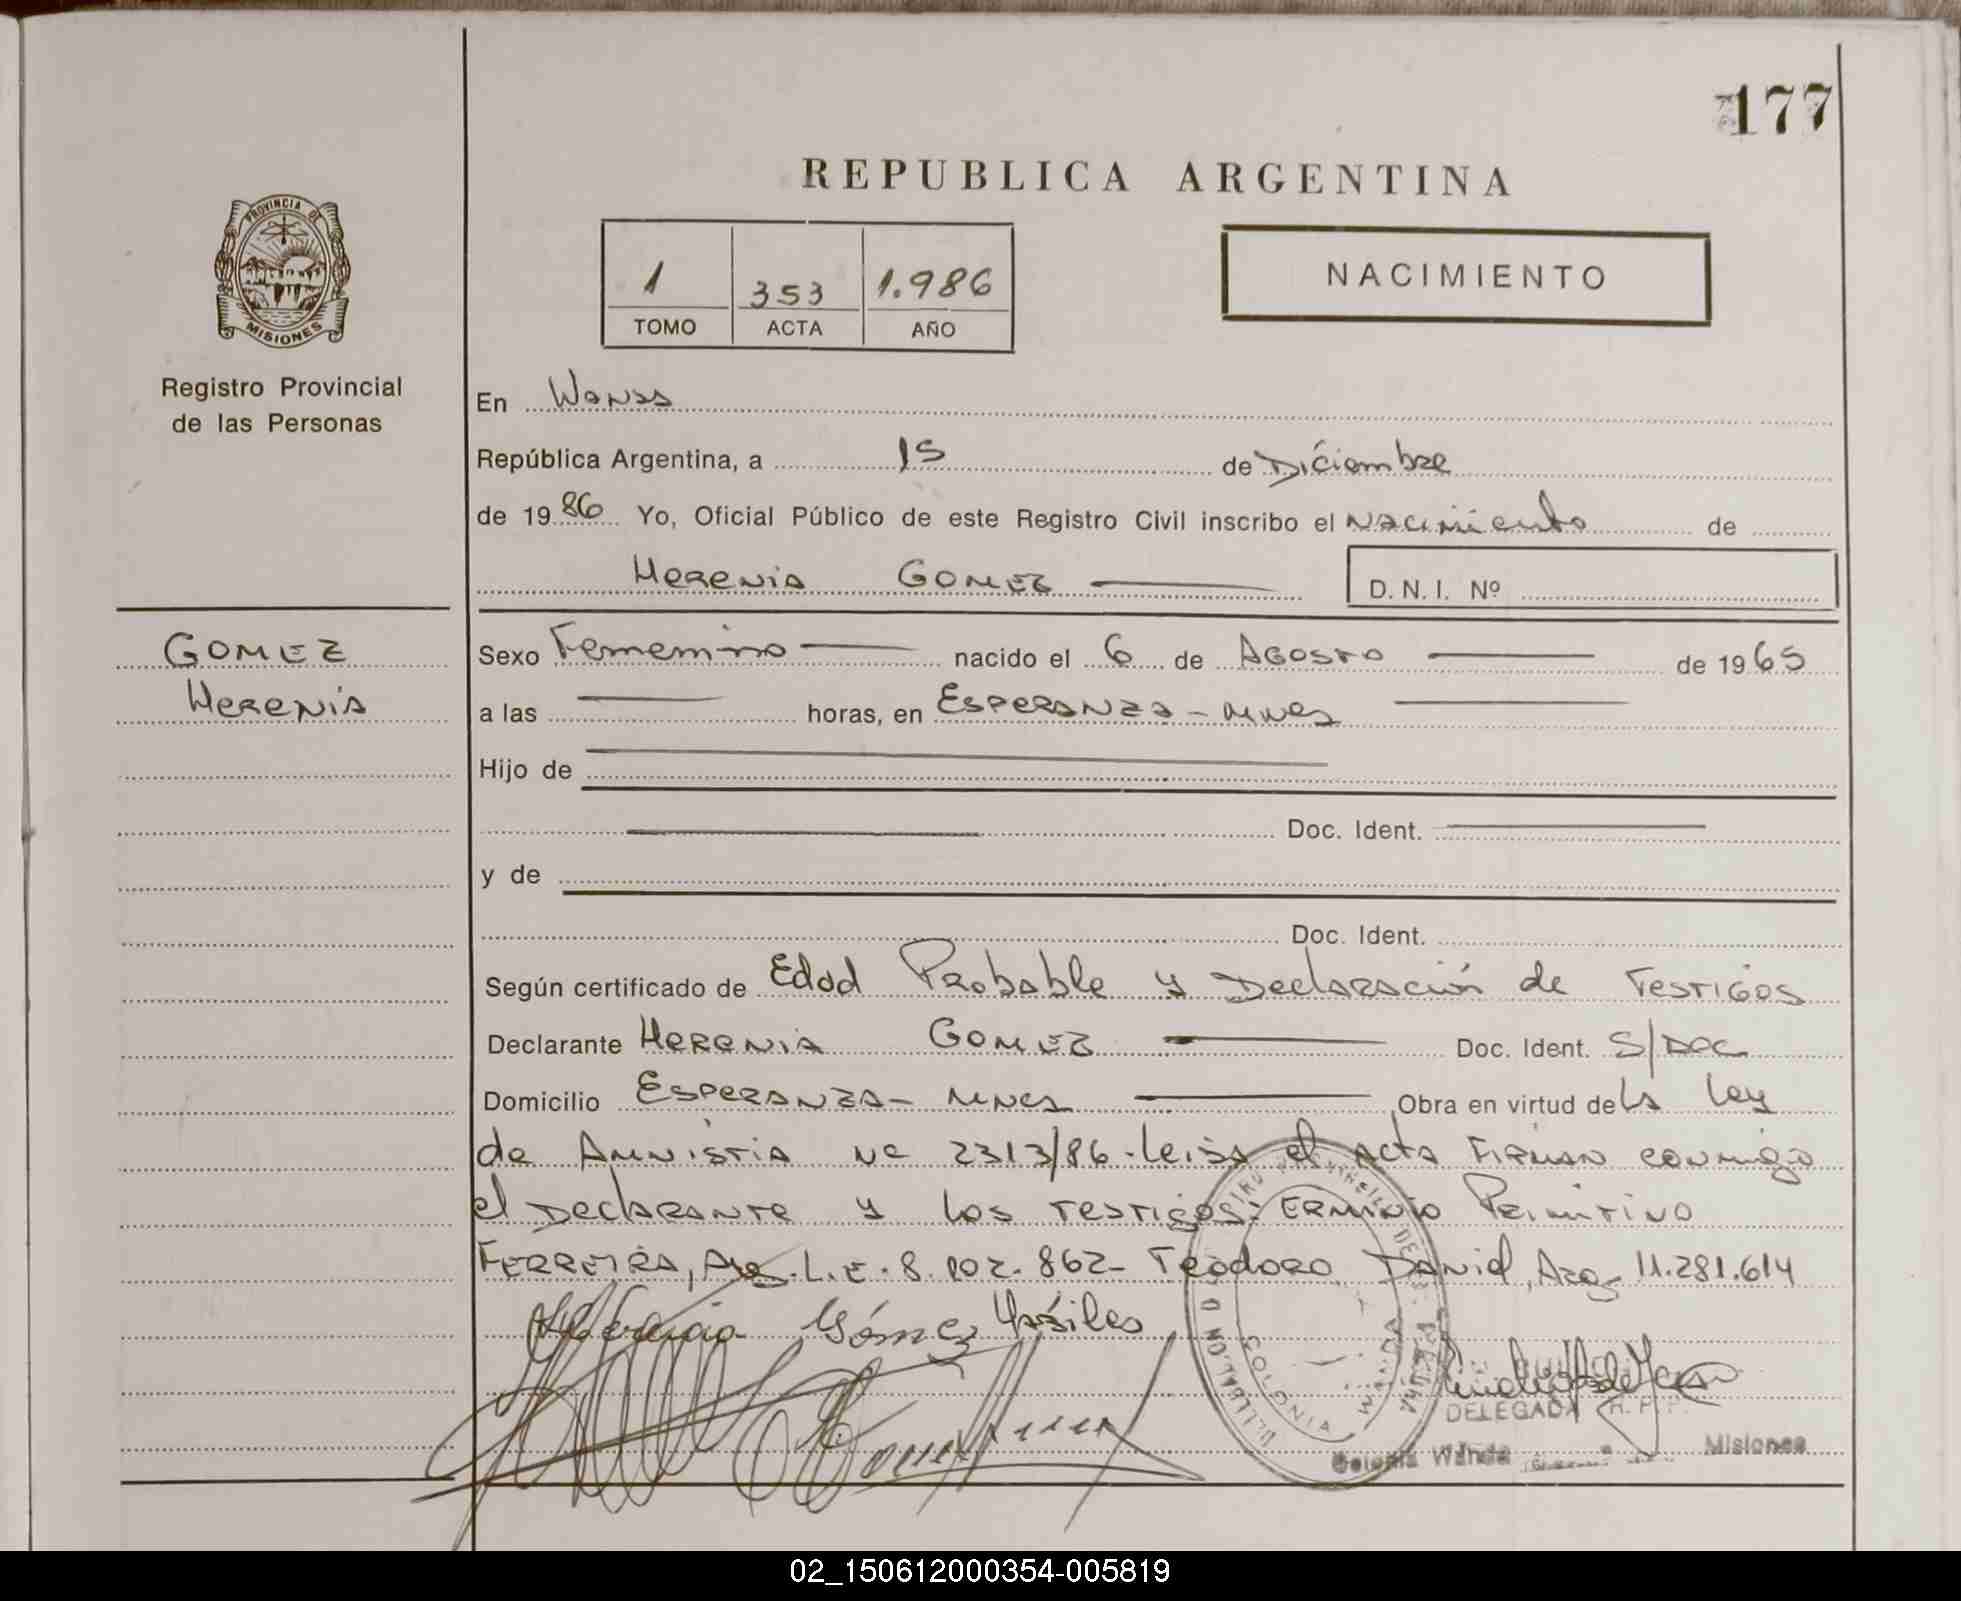 177
REPUBLICA ARGENTINA
PROVINCIA DE
MISIONES
Registro Provincial
de las Personas
1 353 1.986
TOMO ACTA AÑO
NACIMIENTO
En Wanda
República Argentina, a 15 de Diciembre
de 1986 Yo, Oficial Público de este Registro Civil inscribo el Nacimiento de
Herenia GOMEZ
D.N.I. Nº
GOMEZ
Herenia
Sexo Femenino nacido el 6 de Agosto de 1965
a las horas, en Esperanza - Mnes
Hijo de
Doc. Ident.
y de
Doc. Ident.
Según certificado de Edad Probable y Declaración de Testigos
Declarante Herenia GOMEZ Doc. Ident. S/Doc
Domicilio Esperanza - Mnes Obra en virtud de la Ley
de Amnistia Nº 2313/86. Leida el Acta Firman conmigo
el Declarante y los Testigos: Erminio Primitivo
FERREIRA, Arg. L.E. 8.802.862- Teodoro Daniel, Arg. 11.281.614
Gómez
COLONIA WANDA
DELEGADA R. P. P.
Colonia Wanda Misiones
02_150612000354-005819